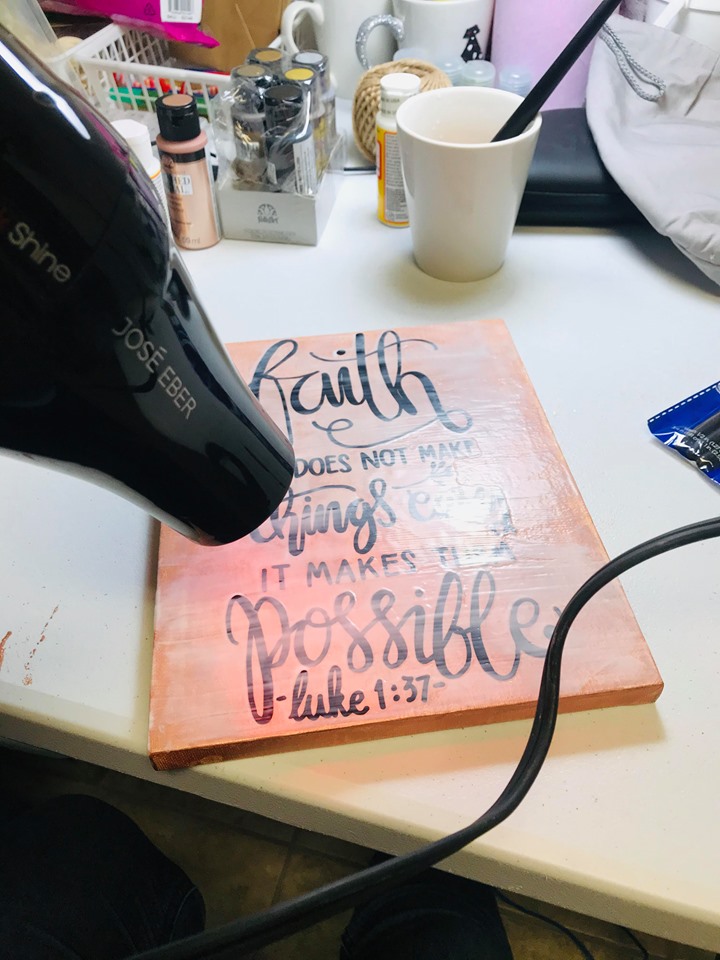 Shine
JOSÉ EBER
faith
DOES NOT MAKE
things easy
IT MAKES THEM
Possible
-luke 1:37-